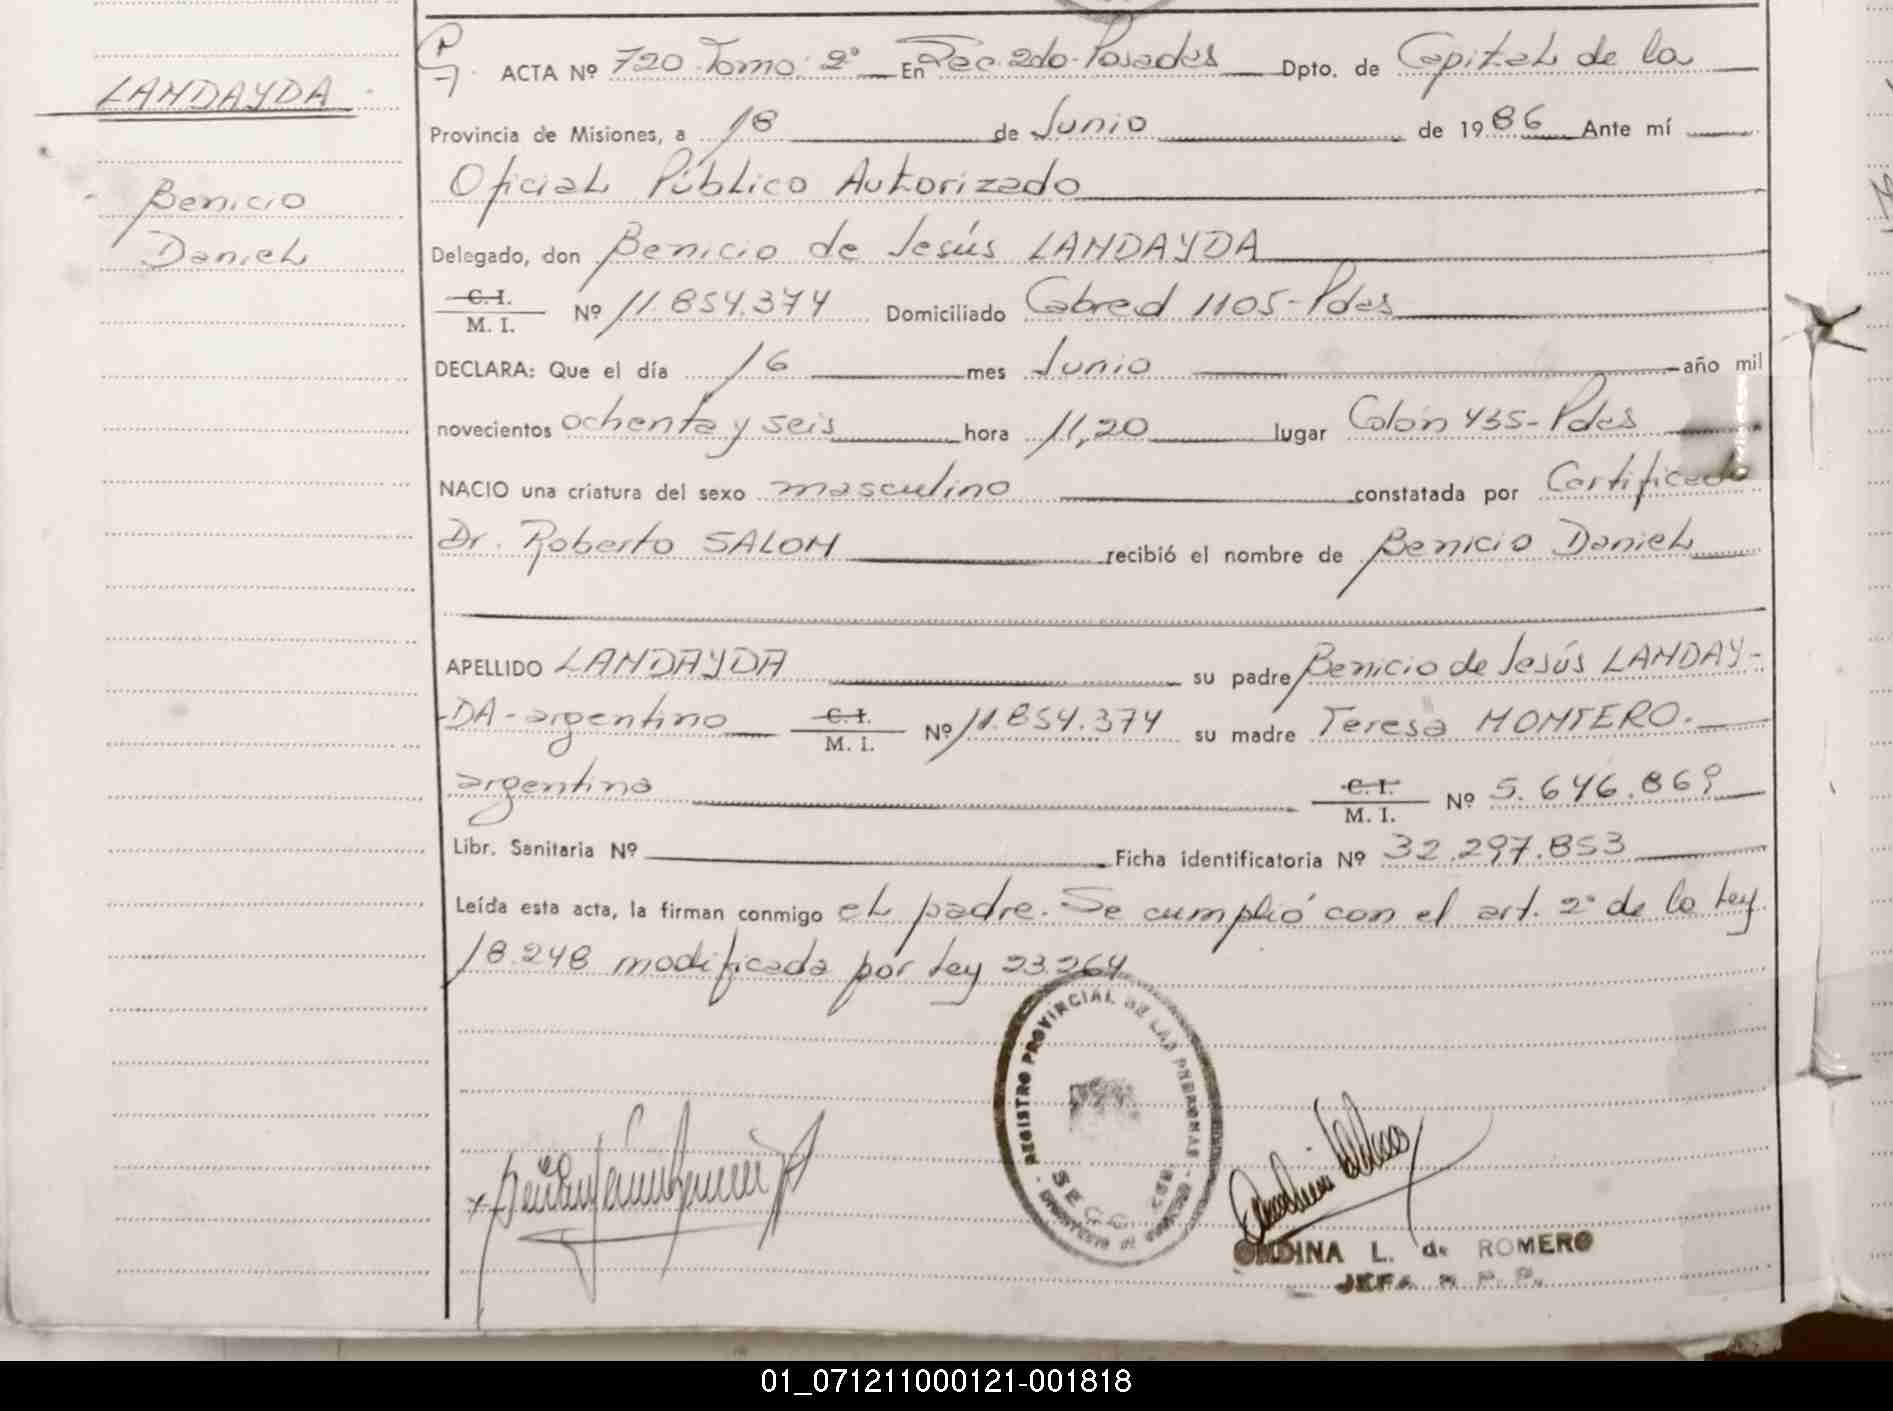 LANDAYDA
Benicio
Daniel
ACTA Nº 720 Tomo: 2º En Sec. 2do. Posadas Dpto. de Capital de la
Provincia de Misiones, a 18 de Junio de 1986 Ante mí
Oficial Público Autorizado
Delegado, don Benicio de Jesús LANDAYDA
C. I.
M. I. Nº 11.854.374 Domiciliado Cabred 1105-Pdas
DECLARA: Que el día 16 mes Junio año mil
novecientos ochenta y seis hora 11,20 lugar Colón 435-Pdas
NACIO una criatura del sexo masculino constatada por Certificado
Dr. Roberto SALOM recibió el nombre de Benicio Daniel
APELLIDO LANDAYDA su padre Benicio de Jesús LANDAY-
-DA - argentino C. I. M. I. Nº 11.854.374 su madre Teresa MONTERO.
argentina C. I. M. I. Nº 5.646.869
Libr. Sanitaria Nº Ficha identificatoria Nº 32.297.853
Leída esta acta, la firman conmigo el padre. Se cumplió con el art. 2º de la Ley
18.248 modificada por Ley 23.264
REGISTRO PROVINCIAL DE LAS PERSONAS
SECC. 2da
ONDINA L. de ROMERO
JEFA R. P. P.
01_071211000121-001818